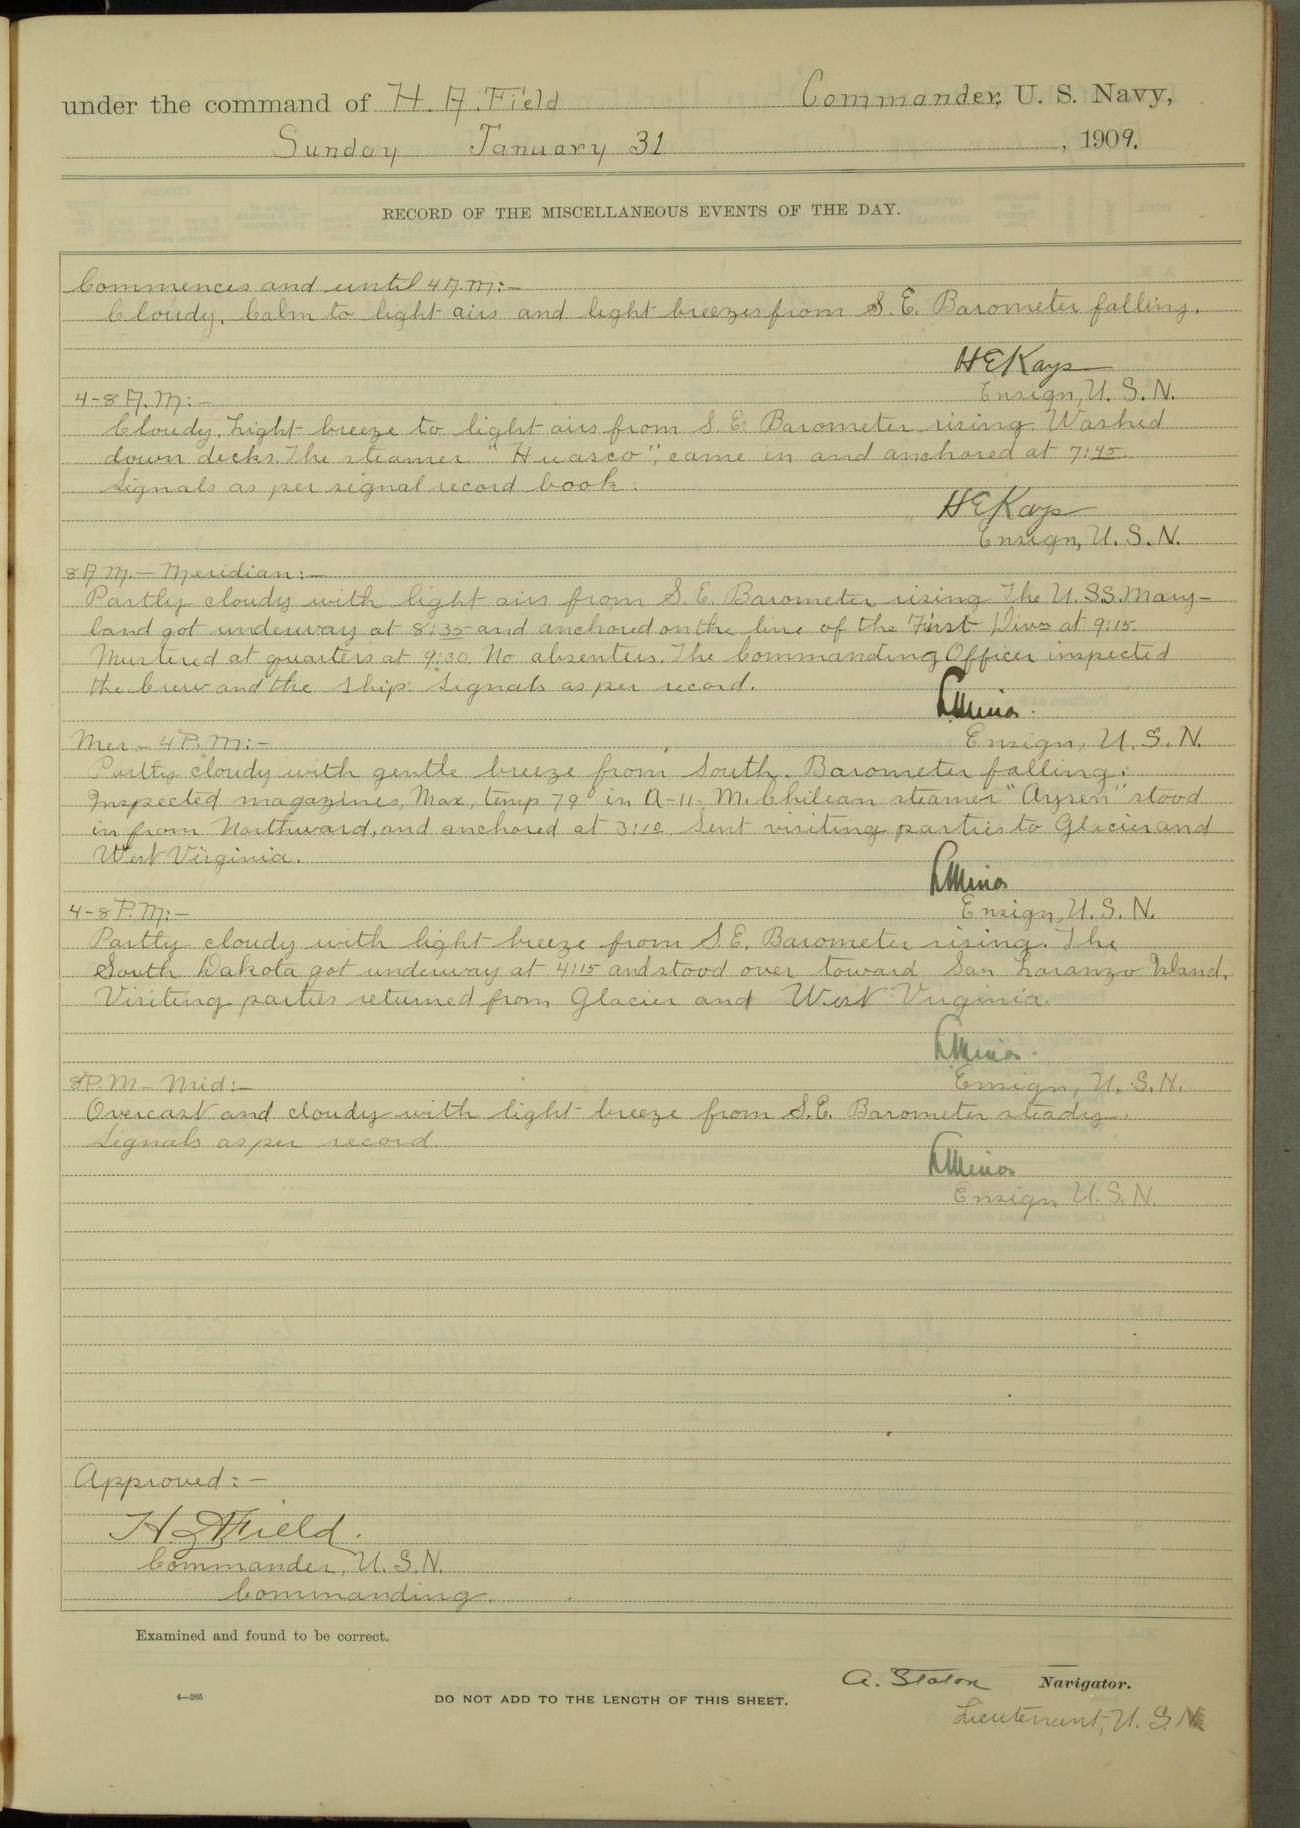 under the command of H. A. Field Commander, U. S. Navy,
Sunday January 31, 1909.
RECORD OF THE MISCELLANEOUS EVENTS OF THE DAY.
Commences and until 4 A.M:-
Cloudy. Calm to light airs and light breezes from S. E. Barometer falling.
H E Kays
Ensign, U. S. N.
4-8 A.M:-
Cloudy. Light breeze to light airs from S. E. Barometer rising Washed
down decks. The steamer "Huasco", came in and anchored at 7:45.
Signals as per signal record book.
H E Kays
Ensign, U. S. N.
8 A M. - Meridian:-
Partly cloudy with light airs from S. E. Barometer rising The U. S.S. Mary-
land got underway at 8:35 and anchored on the line of the First Divon at 9:15.
Mustered at quarters at 9:30. No absentees. The Commanding Officer inspected
the Crew and the ship. Signals as per record.
L Minor.
Ensign, U. S. N.
Mer - 4 P. M:-
Partly cloudy with gentle breeze from South. Barometer falling.
Inspected magazines, Max, temp 79° in A-11-M. Chilean steamer "Aysen" stood
in from Northward, and anchored at 3:10. Sent visiting parties to Glacier and
West Virginia.
L Minor
Ensign, U. S. N.
4-8 P. M:-
Partly cloudy with light breeze from S. E. Barometer rising. The
South Dakota got underway at 4:15 and stood over toward San Loranzo Island.
Visiting parties returned from Glacier and West Virginia.
L Minor.
Ensign, U. S. N.
8 P. M - Mid:-
Overcast and cloudy with light breeze from S. E. Barometer steady.
Signals as per record.
L Minor
Ensign U. S. N.
Approved:-
H. A Field.
Commander, U. S. N.
Commanding.
Examined and found to be correct.
A. Staton Navigator.
4—265 DO NOT ADD TO THE LENGTH OF THIS SHEET.
Lieutenant, U. S. N